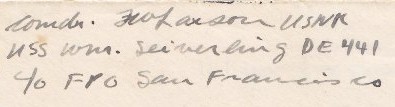 Comdr. FW Larson USNR
USS Wm. Seiverling DE 441
c/o FPO San Francisco